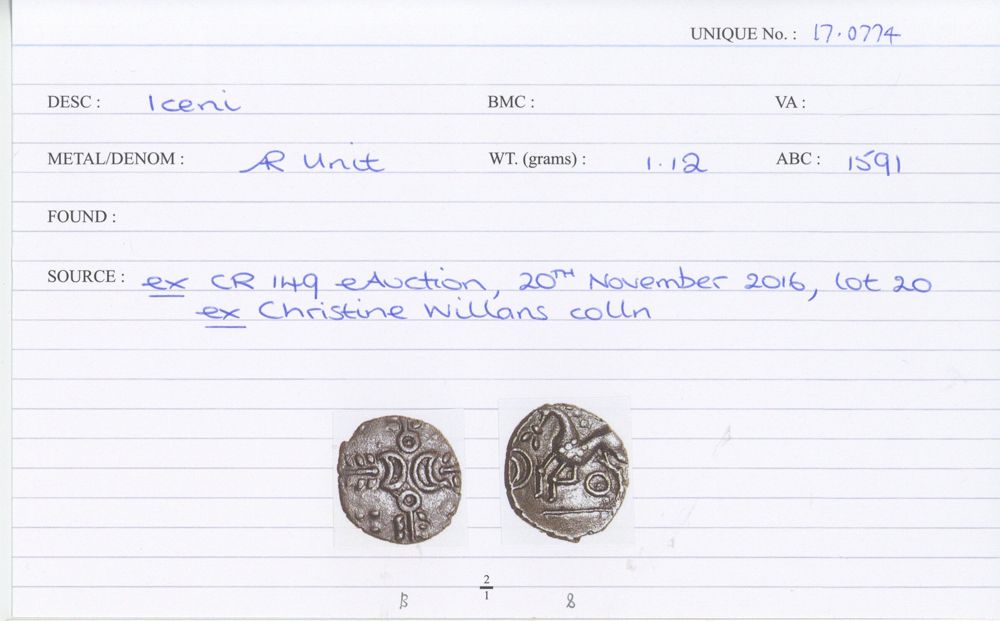 UNIQUE No. : 17.0774
DESC : Iceni BMC : VA :
METAL/DENOM : AR Unit WT. (grams) : 1.12 ABC : 1591
FOUND :
SOURCE : ex CR 149 eAuction, 20TH November 2016, lot 20
ex Christine Willans colln
2
1
B 8